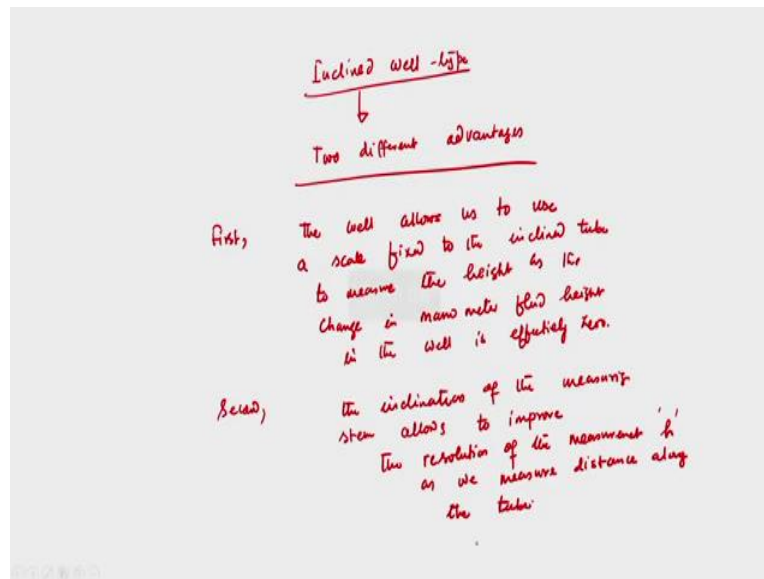 Inclined well-type
Two different advantages
First, the well allows us to use
a scale fixed to the inclined tube
to measure the height as the
change in manometer fluid height
in the well is effectively zero.
Second, the inclination of the measuring
stem allows to improve
the resolution of the measurement 'h'
as we measure distance along
the tube.